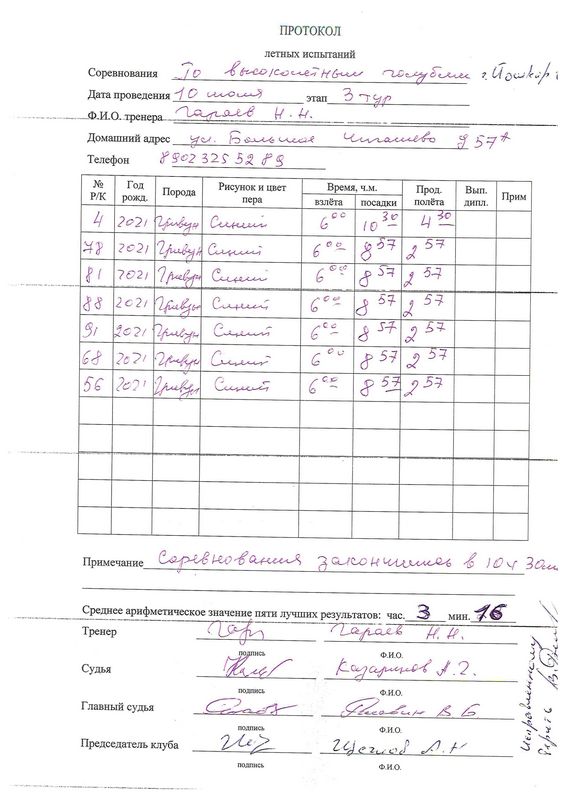 ПРОТОКОЛ
летных испытаний
Соревнования По высоколётным голубям г. Йошкар
Дата проведения 10 июля этап 3 тур
Ф.И.О. тренера Гараев Н.Н.
Домашний адрес ул. Большое Чигашево д 57А
Телефон 89023255289
№ Р/К Год рожд. Порода Рисунок и цвет пера Время, ч.м. взлёта посадки Прод. полёта Вып. дипл. Прим
4 2021 Гривун Синий 6 00 10 30 4 30
78 2021 Гривун Синий 6 00 8 57 2 57
81 2021 Гривун Синий 6 00 8 57 2 57
88 2021 Гривун Синий 6 00 8 57 2 57
91 2021 Гривун Синий 6 00 8 57 2 57
68 2021 Гривун Синий 6 00 8 57 2 57
56 2021 Гривун Синий 6 00 8 57 2 57
Примечание Соревнования закончились в 10ч 30м
Среднее арифметическое значение пяти лучших результатов: час. 3 мин. 16
Тренер Гараев Н.Н.
подпись Ф.И.О.
Судья Казаринов А.Г.
подпись Ф.И.О.
Главный судья В Б
подпись Ф.И.О.
Председатель клуба Щеглов А.Н
подпись Ф.И.О.
Исправленному верить